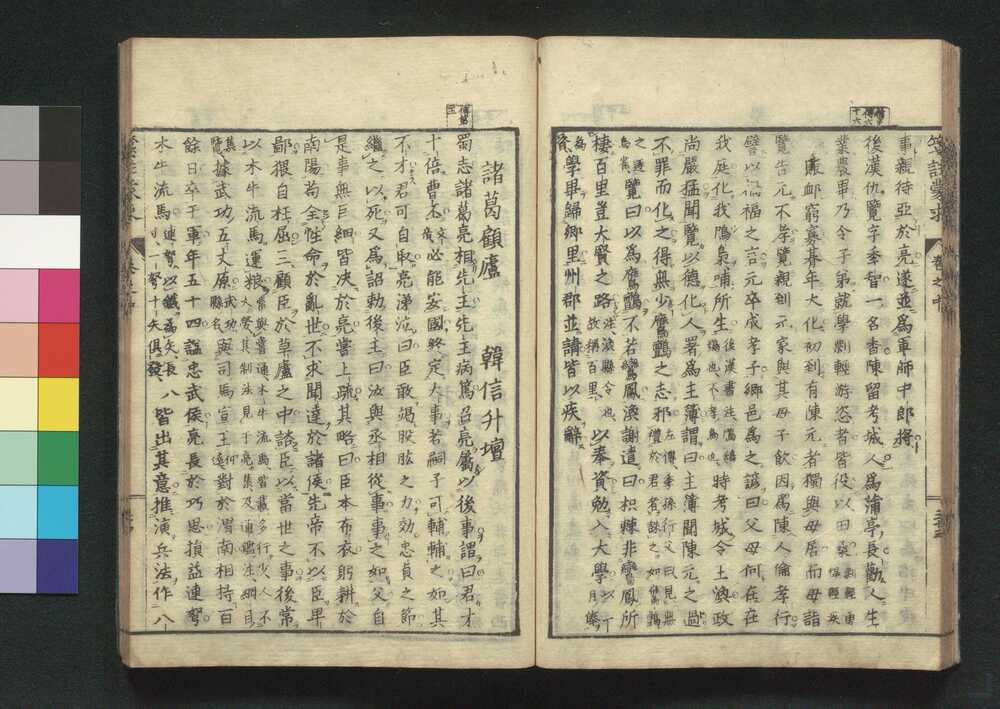 事親待亞於亮遂並爲軍師中郎將
後漢仇覽字季智一名香陳留考城人爲蒲亭長勸人生
業農畢乃令子弟就學剽輕游恣者皆役以田桑
賑卹窮寡朞年大化初到有陳元者獨與母居而母詣
覽告元不孝覽親到元家與其母子飲因爲陳人倫孝行
譬以禍福之言元卒成孝子鄉邑爲之諺曰父母何在在
我庭化我鳲梟哺所生 時考城令王渙政
尚嚴猛聞覽以德化人署爲主簿謂曰主簿聞陳元之過
不罪而化之得無少鷹鸇之志邪
覽曰以爲鷹鸇不若鸞鳳渙謝遣曰枳棘非鸞鳳所
棲百里豈大賢之路 以奉資勉入大學
學畢歸鄉里州郡並請皆以疾辭
諸葛顧廬 韓信升壇
蜀志諸葛亮相先主先主病篤召亮屬以後事謂曰君才
十倍曹丕必能安國終定大事若嗣子可輔輔之如其
不才君可自取亮涕泣曰臣敢竭股肱之力効忠貞之節
繼之以死又爲詔勅後主曰汝與丞相從事事之如父自
是事無巨細皆決於亮嘗上疏其略曰臣本布衣躬耕於
南陽苟全性命於亂世不求聞達於諸侯先帝不以臣卑
鄙猥自枉屈三顧臣於草廬之中諮臣以當世之事後常
以木牛流馬運粮
據武功五丈原 與司馬宣王對於渭南相持百
餘日卒于軍年五十四謚忠武侯亮長於巧思損益連弩
木牛流馬 皆出其意推演兵法作八